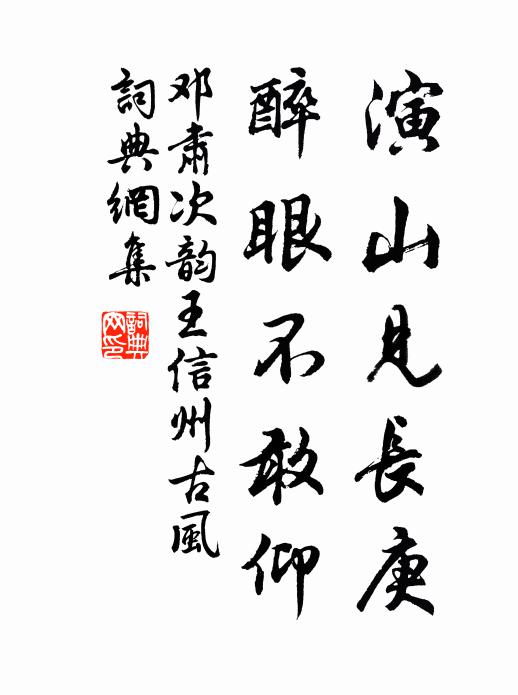 演山見長庚
醉眼不敢仰
邓肅次韵王信州古風
詞典網集
詞典網印